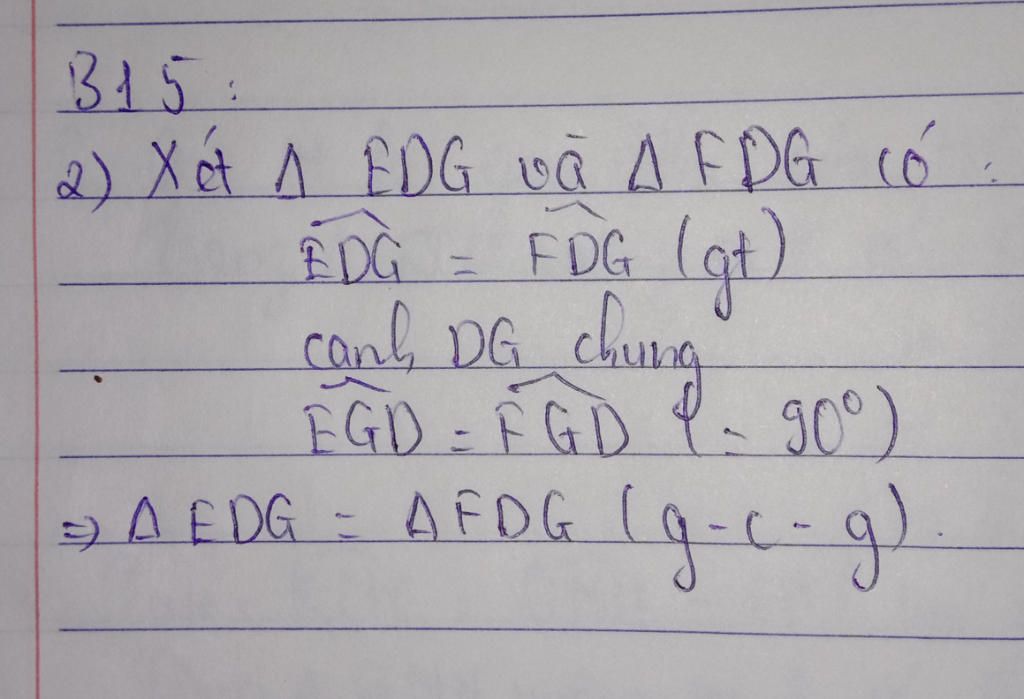 B15:
2) Xét Δ EDG và Δ FDG có:
$\widehat{EDG}$ = $\widehat{FDG}$ (gt)
canh DG chung
$\widehat{EGD}$ = $\widehat{FGD}$ (= 90°)
⇒ Δ EDG = Δ FDG (g-c-g).